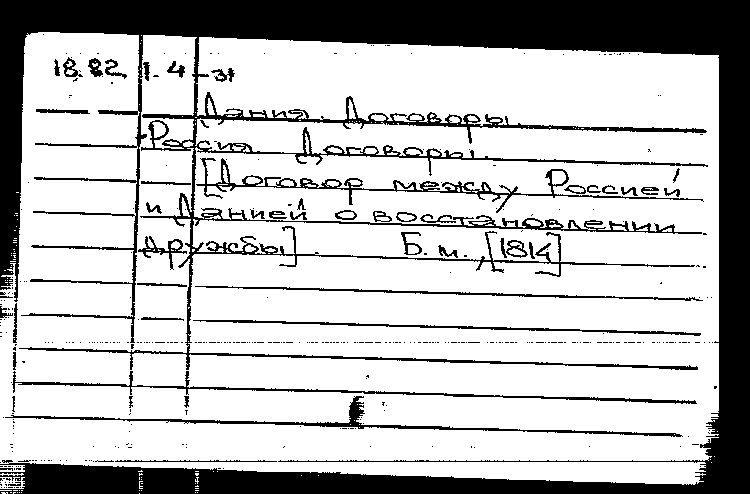 18.82. 1.4-31
Дания. Договоры.
-Россия. Договоры.
[Договор между Россией
и Данией о восстановлении
дружбы]. Б.м., [1814]